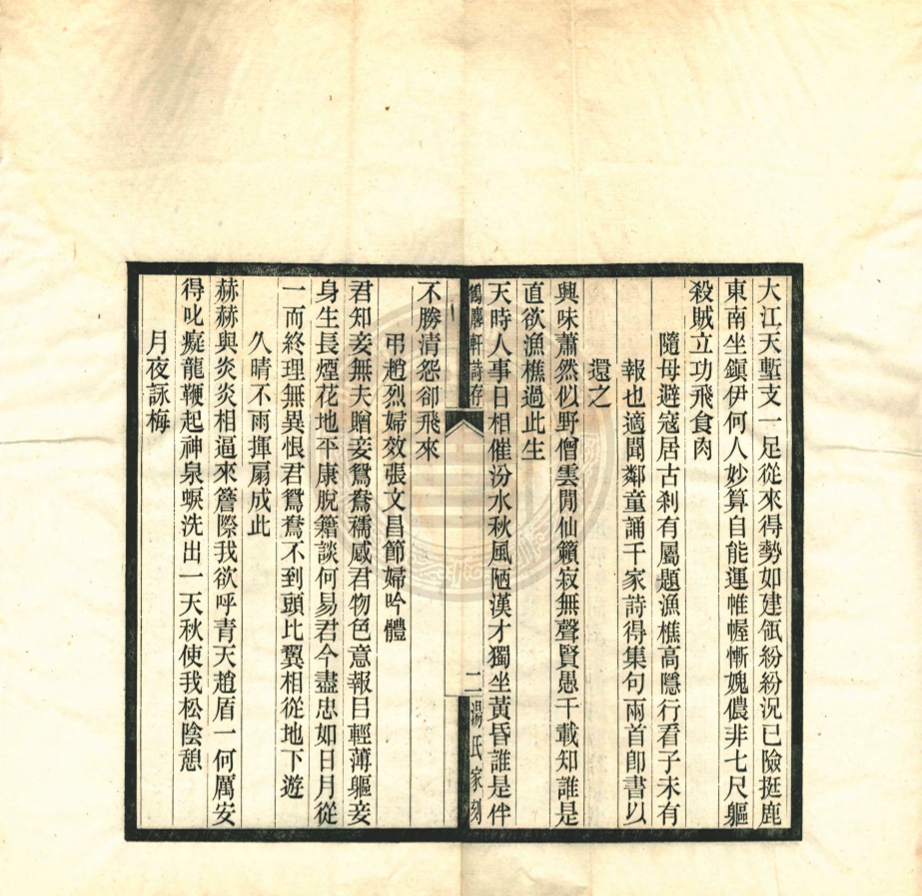 大江天塹支一足從來得勢如建瓴紛紛況已險挺鹿
東南坐鎮伊何人妙算自能運帷幄慚媿儂非七尺軀
殺賊立功飛食肉
隨母避寇居古刹有屬題漁樵高隱行看子未有
報也適聞鄰童誦千家詩得集句兩首卽書以
還之
興味蕭然似野僧雲閒仙籟寂無聲賢愚千載知誰是
直欲漁樵過此生
天時人事日相催汾水秋風陋漢才獨坐黃昏誰是伴
鶴麐軒詩存
二
湯氏家刻
不勝清怨卻飛來
弔趙烈婦效張文昌節婦吟體
君知妾無夫贈妾鴛鴦襦感君物色意報目輕薄軀妾
身生長煙花地平康脫籍談何易君今盡忠如日月從
一而終理無異恨君鴛鴦不到頭比翼相從地下遊
久晴不雨揮扇成此
赫赫與炎炎相逼來簷際我欲呼青天趙盾一何厲安
得叱癡龍鞭起神泉蜧洗出一天秋使我松陰憩
月夜詠梅